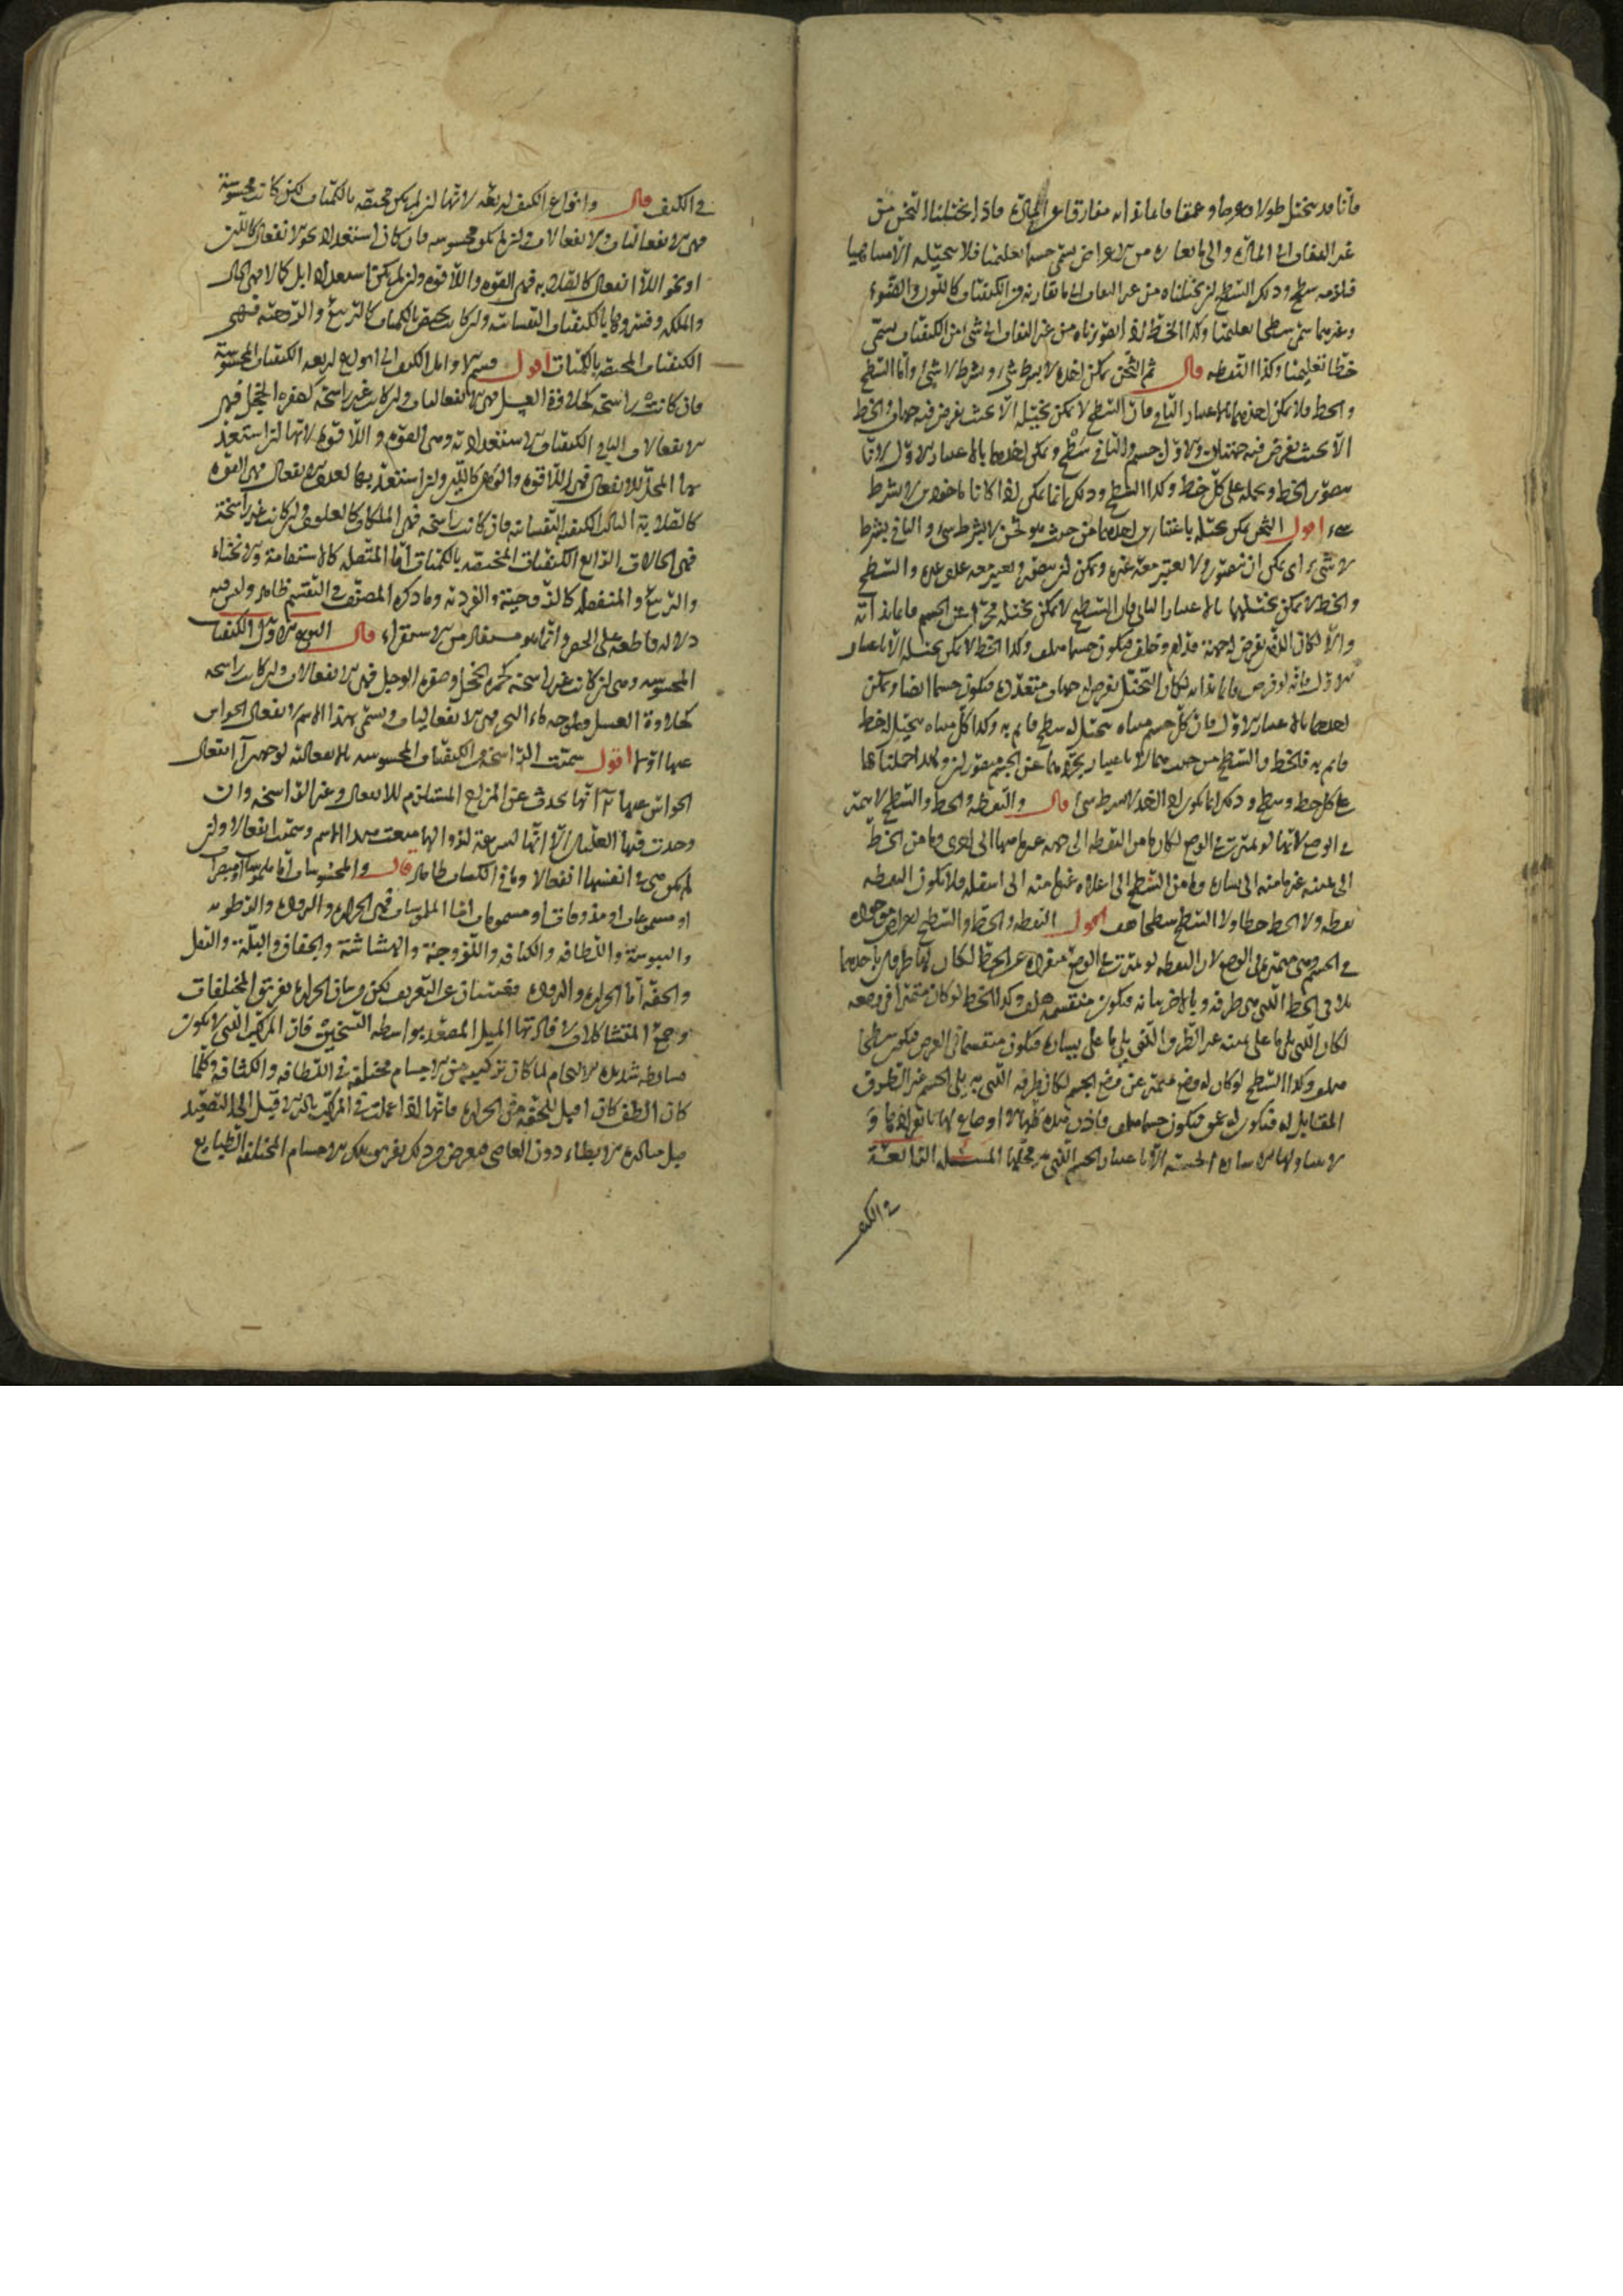 فانا قد نتخيل طولا وعرضا وعمقا قائما بذاته مفارقا عن المادة فاذا تخيلنا الثخن من
غير التفات الى المادة والى ما يقارنه من الاعراض سمى جسما تعليميا فلا نتخيله الا متناهيا
فيلزمه سطح وذلك السطح ان تخيلناه من غير التفات الى ما يقارنه من الكيفيات كاللون والضوء
وغيرهما سمى سطحا تعليميا وكذا الخط اذا تصورناه من غير التفات الى شئ من الكيفيات سمى
خطا تعليميا وكذا النقطه قال ثم الثخن يمكن اخذه لا بشرط شئ وبشرط لا شئ واما السطح
والخط فلا يمكن اخذهما بالاعتبار الثانى فان السطح لا يمكن تخيله الا بحيث يفرض فيه جهتان والخط
الا بحيث يفرض فيه جهتان والاول جسم والثانى سطح ويمكن اخذهما بالاعتبار الاول لانا
نتصور الخط ونحمله على كل خط وكذا السطح وذلك انما يمكن اذا كانا ماخوذين لا بشرط
شئ اقول الثخن يمكن تخيله باعتبارين احدهما من حيث هو ثخن لا بشرط شئ والثانى بشرط
لا شئ اى يمكن ان نتصوره ولا نعتبر معه غيره ويمكن ان نتصوره ونعتبر معه عدم غيره والسطح
والخط لا يمكن تخيلهما بالاعتبار الثانى فان السطح لا يمكن تخيله مجردا عن الجسم قائما بذاته
والا لكان الذى يفرض له جهة قدام وخلف فيكون جسما هف وكذا الخط لا يمكن تخيله الا باعتبار
الاول فانه لو فرض قائما بذاته لكان التخيل يفرض له جهات متعددة فيكون جسما ايضا ويمكن
اخذهما بالاعتبار الاول فان كل جسم متناه نتخيل له سطح قائم به وكذا كل متناه نتخيل له خط
قائم به فالخط والسطح من حيث هما لا باعتبار تجردهما عن الجسم متصوران ولهذا حملناهما
على كل خط وسطح وذلك انما يكون اذا اخذ لا بشرط شئ قال والنقطة والخط والسطح لا يتميز
فى الوضع لانها لو تميزت فى الوضع لكان ما من النقطه الى جهة غير ما منها الى اخرى وما من الخط
الى يمينه غير ما منه الى يساره وما من السطح الى اعلاه غير ما منه الى اسفله فلا تكون النقطه
نقطه ولا الخط خطا ولا السطح سطحا هف اقول النقطه والخط والسطح اعراض موجودة
فى الجسم وهى متميزة فى الوضع لان النقطه لو تميزت فى الوضع منفردة عن الخط لكان لها طرفان باحدهما
تلاقى الخط الذى هى طرفه وبالاخر تباينه فيكون منقسمة هف وكذا الخط لو كان متميزا فى وضعه
لكان الذى يلى ما على يمينه غير الطرف الذى يلى ما على يساره فيكون منقسما فى العرض فيكون سطحا
هف وكذا السطح لو كان له وضع متميز عن وضع الجسم لكان طرفه الذى به يلى الجسم غير الطرف
المقابل له فيكون له عمق فيكون جسما هف فاذن هذه كلها لا اوضاع لها بانفرادها و
لا يتناولها الاشارة الحسية الا باعتبار الجسم الذى هو محلها المسئله الرابعة
فى الكيف
فى الكيف قال وانواع الكيف اربعة لانها ان لم يكن مختصة بالكميات لكن كانت محسوسة
فهى الانفعاليات والانفعالات وان لم تكن محسوسه فان كان استعدادا نحو الانفعال كاللين
او نحو اللا انفعال كالصلابه فهى القوة واللاقوة وان لم يكن استعدادا بل كمالا فهى الحال
والملكه وفسروها بالكيفيات النفسانيه وان كانت مختصة بالكميات كالتربيع والزوجية فهى
الكيفيات المختصه بالكميات اقول قسم الاوائل الكيف الى انواع اربعه الكيفيات المحسوسة
فان كانت راسخه كحلاوة العسل فهى الانفعاليات وان كانت غير راسخه كصفرة الخجل فهى
الانفعالات الثانى الكيفيات الاستعداديه وهى القوة واللاقوة لانها ان استعد
بها المحل للانفعال فهى اللاقوة والوهن كاللين وان استعد بها لعدم الانفعال فهى القوة
كالصلابة الثالث الكيفيه النفسانيه فان كانت راسخه فهى الملكات كالعلوم وان كانت غير راسخة
فهى الحالات الرابع الكيفيات المختصه بالكميات اما المتصله كالاستقامة والانحناء
والتربيع والمنفصلة كالزوجية والفردية وما ذكره المصنف فى التقسيم ظاهر وليس فيه
دلاله قاطعه على الحصر وانما هو مستفاد من الاستقراء قال النوع الاول الكيفيات
المحسوسه وهى ان كانت غير راسخه كحمرة الخجل وصفرة الوجل فهى الانفعالات وان كانت راسخه
كحلاوة العسل وملوحه ماء البحر فهى الانفعاليات وتسمى بهذا الاسم لانفعال الحواس
عنها اولا اقول سميت الراسخة من الكيفيات المحسوسه بالانفعالية لوجهين ا انفعال
الحواس عنها ب انها تحدث عن المزاج المستلزم للانفعال وغير الراسخه وان
وجدت فيها العلتان الا انها لسرعة زوالها منعت هذا الاسم وسميت انفعالا وان
لم تكن هى فى انفسها انفعالا وما فى الكتاب ظاهر قال والمحسوسات اما ملموسات او مبصرات
او مسموعات او مذوقات او مشمومات اما الملموسات فهى الحرارة والبرودة والرطوبه
واليبوسة واللطافه والكثافه واللزوجة والهشاشة والجفاف والبلة والثقل
والخفه اما الحرارة والبرودة فغنيتان عن التعريف لكن من شان الحرارة تفريق المختلفات
وجمع المتشاكلات لافادتها الميل المصعد بواسطه التسخين فان المركب الذى لا يكون
بسائطه شديدة الالتحام لما كان تركيبه من الاجسام مختلفة فى اللطافه والكثافة وكلما
كان الطف كان اقبل للخفه من الحرارة فانها اذا عملت فى المركب بادر الاقبل الى التصعيد
قبل مبادرة الابطاء دون العاصى فعرض من ذلك تفريق تلك الاجسام المختلفه الطبايع